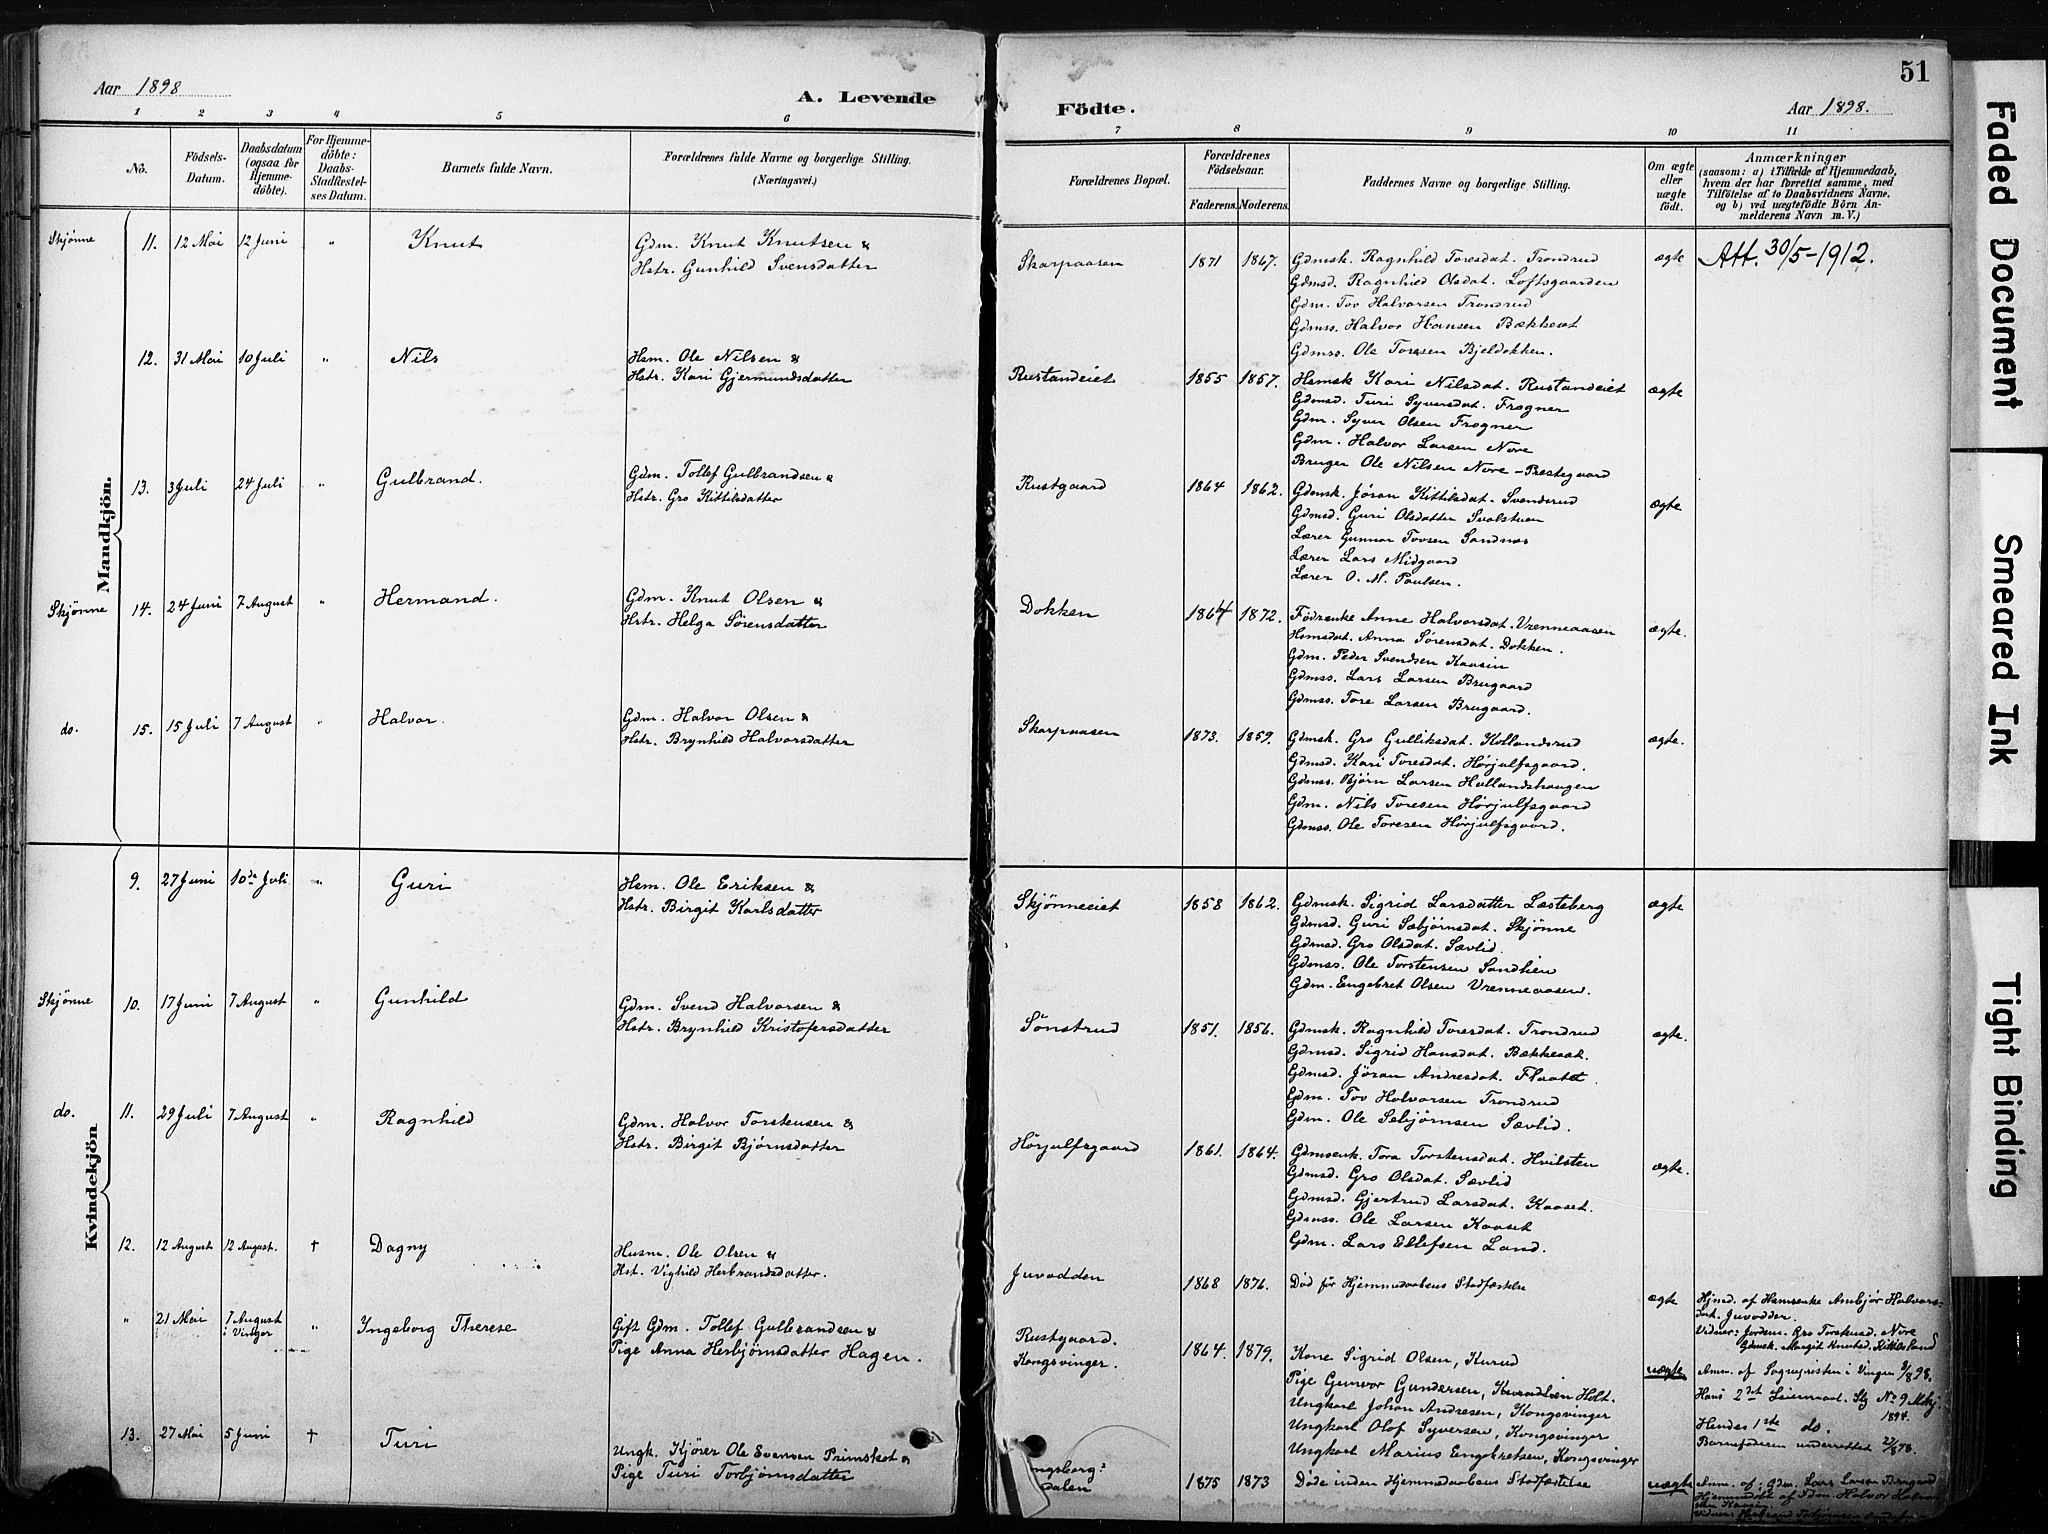 Aar 1898
A. Levende
1 2 3 4 5 6
No.
Födsels-Datum.
Daabsdatum (ogsaa for Hjemmedöbte).
For Hjemmedöbte: Daabs-Stadfestelses Datum.
Barnets fulde Navn.
Forældrenes fulde Navne og borgerlige Stilling. (Næringsvei.)
Mandkjön.
Skjønne 11. 12 Mai 12 Juni " Knut Gdm. Knut Knutsen &
Hstr. Gunhild Svensdatter
12. 31 Mai 10 Juli " Nils Hsm. Ole Nilsen &
Hstr. Kari Gjermundsdatter
13. 3 Juli 24 Juli " Gulbrand. Gdm. Tollef Gulbrandsen &
Hstr. Gro Kittilsdatter
Skjønne 14. 24 Juni 7 August " Hermand. Gdm. Knut Olsen &
Hstr. Helga Sörensdatter
do. 15. 15 Juli 7 August " Halvor. Gdm. Halvor Olsen &
Hstr. Brynhild Halvorsdatter
Kvindekjön
9. 27 Juni 10de Juli " Guri Hsm. Ole Eriksen &
Hstr. Birgit Karlsdatter
Skjønne 10. 17 Juni 7 August " Gunhild Gdm. Svend Halvorsen &
Hstr. Brynhild Kristofersdatter
do. 11. 29 Juli 7 August " Ragnhild Gdm. Halvor Torstensen &
Hstr. Birgit Bjørnsdatter
12. 12 August 12 August. † Dagny Husm. Ole Olsen &
Hst. Vighild Herbrandsdatter.
" 21 Mai 7 August i Vinger " Ingeborg Therese Gift Gdm. Tollef Gulbrandsen &
Pige Anna Herbjörnsdatter Hagen.
13. 27 Mai 5 Juni † Turi Ungk. Kjører Ole Evensen Primskot &
Pige Turi Torbjörnsdatter
51
Födte.
Aar 1898.
7 8 9 10 11
Forældrenes Bopæl.
Forældrenes Födselsaar.
Faderens. Moderens.
Faddernes Navne og borgerlige Stilling.
Om ægte eller uægte födt.
Anmærkninger
(saasom: a) i Tilfælde af Hjemmedaab, hvem der har forrettet samme, med Tilföielse af to Daabsvidners Navne, og b) ved uægtefödte Börn Anmelderens Navn m. V.)
Skarpaasen 1871 1867. Gdmsk. Ragnhild Toresdat. Trondrud ægte Att. 30/5-1912.
Gdmsd. Ragnhild Olsdat. Loftsgaarden
Gdm. Tov Halvorsen Trondrud
Gdmss. Halvor Hansen Bækkeset
Gdmss. Ole Toresen Bjeldokken.
Rustandeiet 1855 1857. Hsmsk Kari Nilsdat. Rustandeiet ægte
Gdmsd. Turi Syversdat. Frogner
Gdm. Syver Olsen Frogner
Gdm. Halvor Larsen Nore
Bruger Ole Nilsen Nore-Prestegaard
Rustgaard 1864 1862. Gdmsk. Jöran Kittilsdat. Svendsrud ægte
Gdmsd. Guri Olsdatter Svalstuen
Lærer Gunnar Tovsen Sandnæs
Lærer Lars Midgaard
Lærer O. M. Paulsen.
Dokken 1864 1872. Födsenke Anne Halvorsdat. Vrenneaasen ægte.
Hsmsdat. Anna Sörensdat. Dokken.
Gdm. Peder Svendsen Kaasin
Gdmss. Lars Larsen Brugaard
Gdmss. Tore Larsen Brugaard.
Skarpaasen 1873. 1859. Gdmsk. Gro Gulliksdat. Kollandsrud ægte.
Gdmsd. Kari Toresdat. Hörjulfsgaard.
Gdmss. Björn Larsen Hullandshaugen
Gdm. Nils Toresen Hörjulfsgaard
Gdmss. Ole Toresen Hörjulfsgaard.
Skjönneeiet 1858 1862. Gdmsk. Sigrid Larsdatter Læsteberg ægte
Gdmsd. Guri Sebjörnsdat. Skjönne
Gdmsd. Gro Olsdat. Sævlid.
Gdmss. Ole Torstensen Sandlien
Gdm. Engebret Olsen Vrenneaasen.
Sönstrud 1851. 1856. Gdmsk. Ragnhild Toresdat. Trondrud ægte.
Gdmsd. Sigrid Hansdat. Bækkeset.
Gdmsd. Jöran Andresdat. Flaatet.
Gdm. Tov Halvorsen Trondrud
Gdm. Ole Sebjörnsen Sævlid.
Hörjulfsgaard 1861. 1864. Gdmsenk. Tora Torstensdat. Hvilsten ægte.
Gdmsd. Gro Olsdat. Sævlid
Gdmsd. Gjertrud Larsdat. Kaaset.
Gdmss. Ole Larsen Kaaset
Gdm. Lars Ellefsen Land.
Juvodden 1868 1876. Död för Hjemmedaabens Stadfæstelse ægte Hjmd. af Hsmsenke Ambjör Halvorsdat. Juvodden.
Vidner: Jordem. Gro Torstensd. Nore
Gdmsk. Margit Knutsd. Kittilsland
Rustgaard.
Kongsvinger. 1864. 1879. Kone Sigrid Olsen, Kurud uægte Anm. af Sogneprästen i Vinger 9/8 98.
Pige Gunvor Gundersen, Kurudlien Holt.
Ungkarl Johan Andresen, Kongsvinger
Ungkarl Olof Syversen, Kongsvinger
Ungkarl Marius Engebretsen, Kongsvinger
Hans 2det Leiermaal. Slg No 9 Mskj. 1894.
Hendes 1ste do.
Barnefaderen underrettet 22/8 98.
dalen 1875 1873 Döde inden Hjemmedaabens Stadfæstelse uægte Anm. af: Gdm. Lars Larsen Brugaard
Hjemmedöbt af Gdm. Halvor Halvorsen Kaasin.
Faded Document
Smeared Ink
Tight Binding